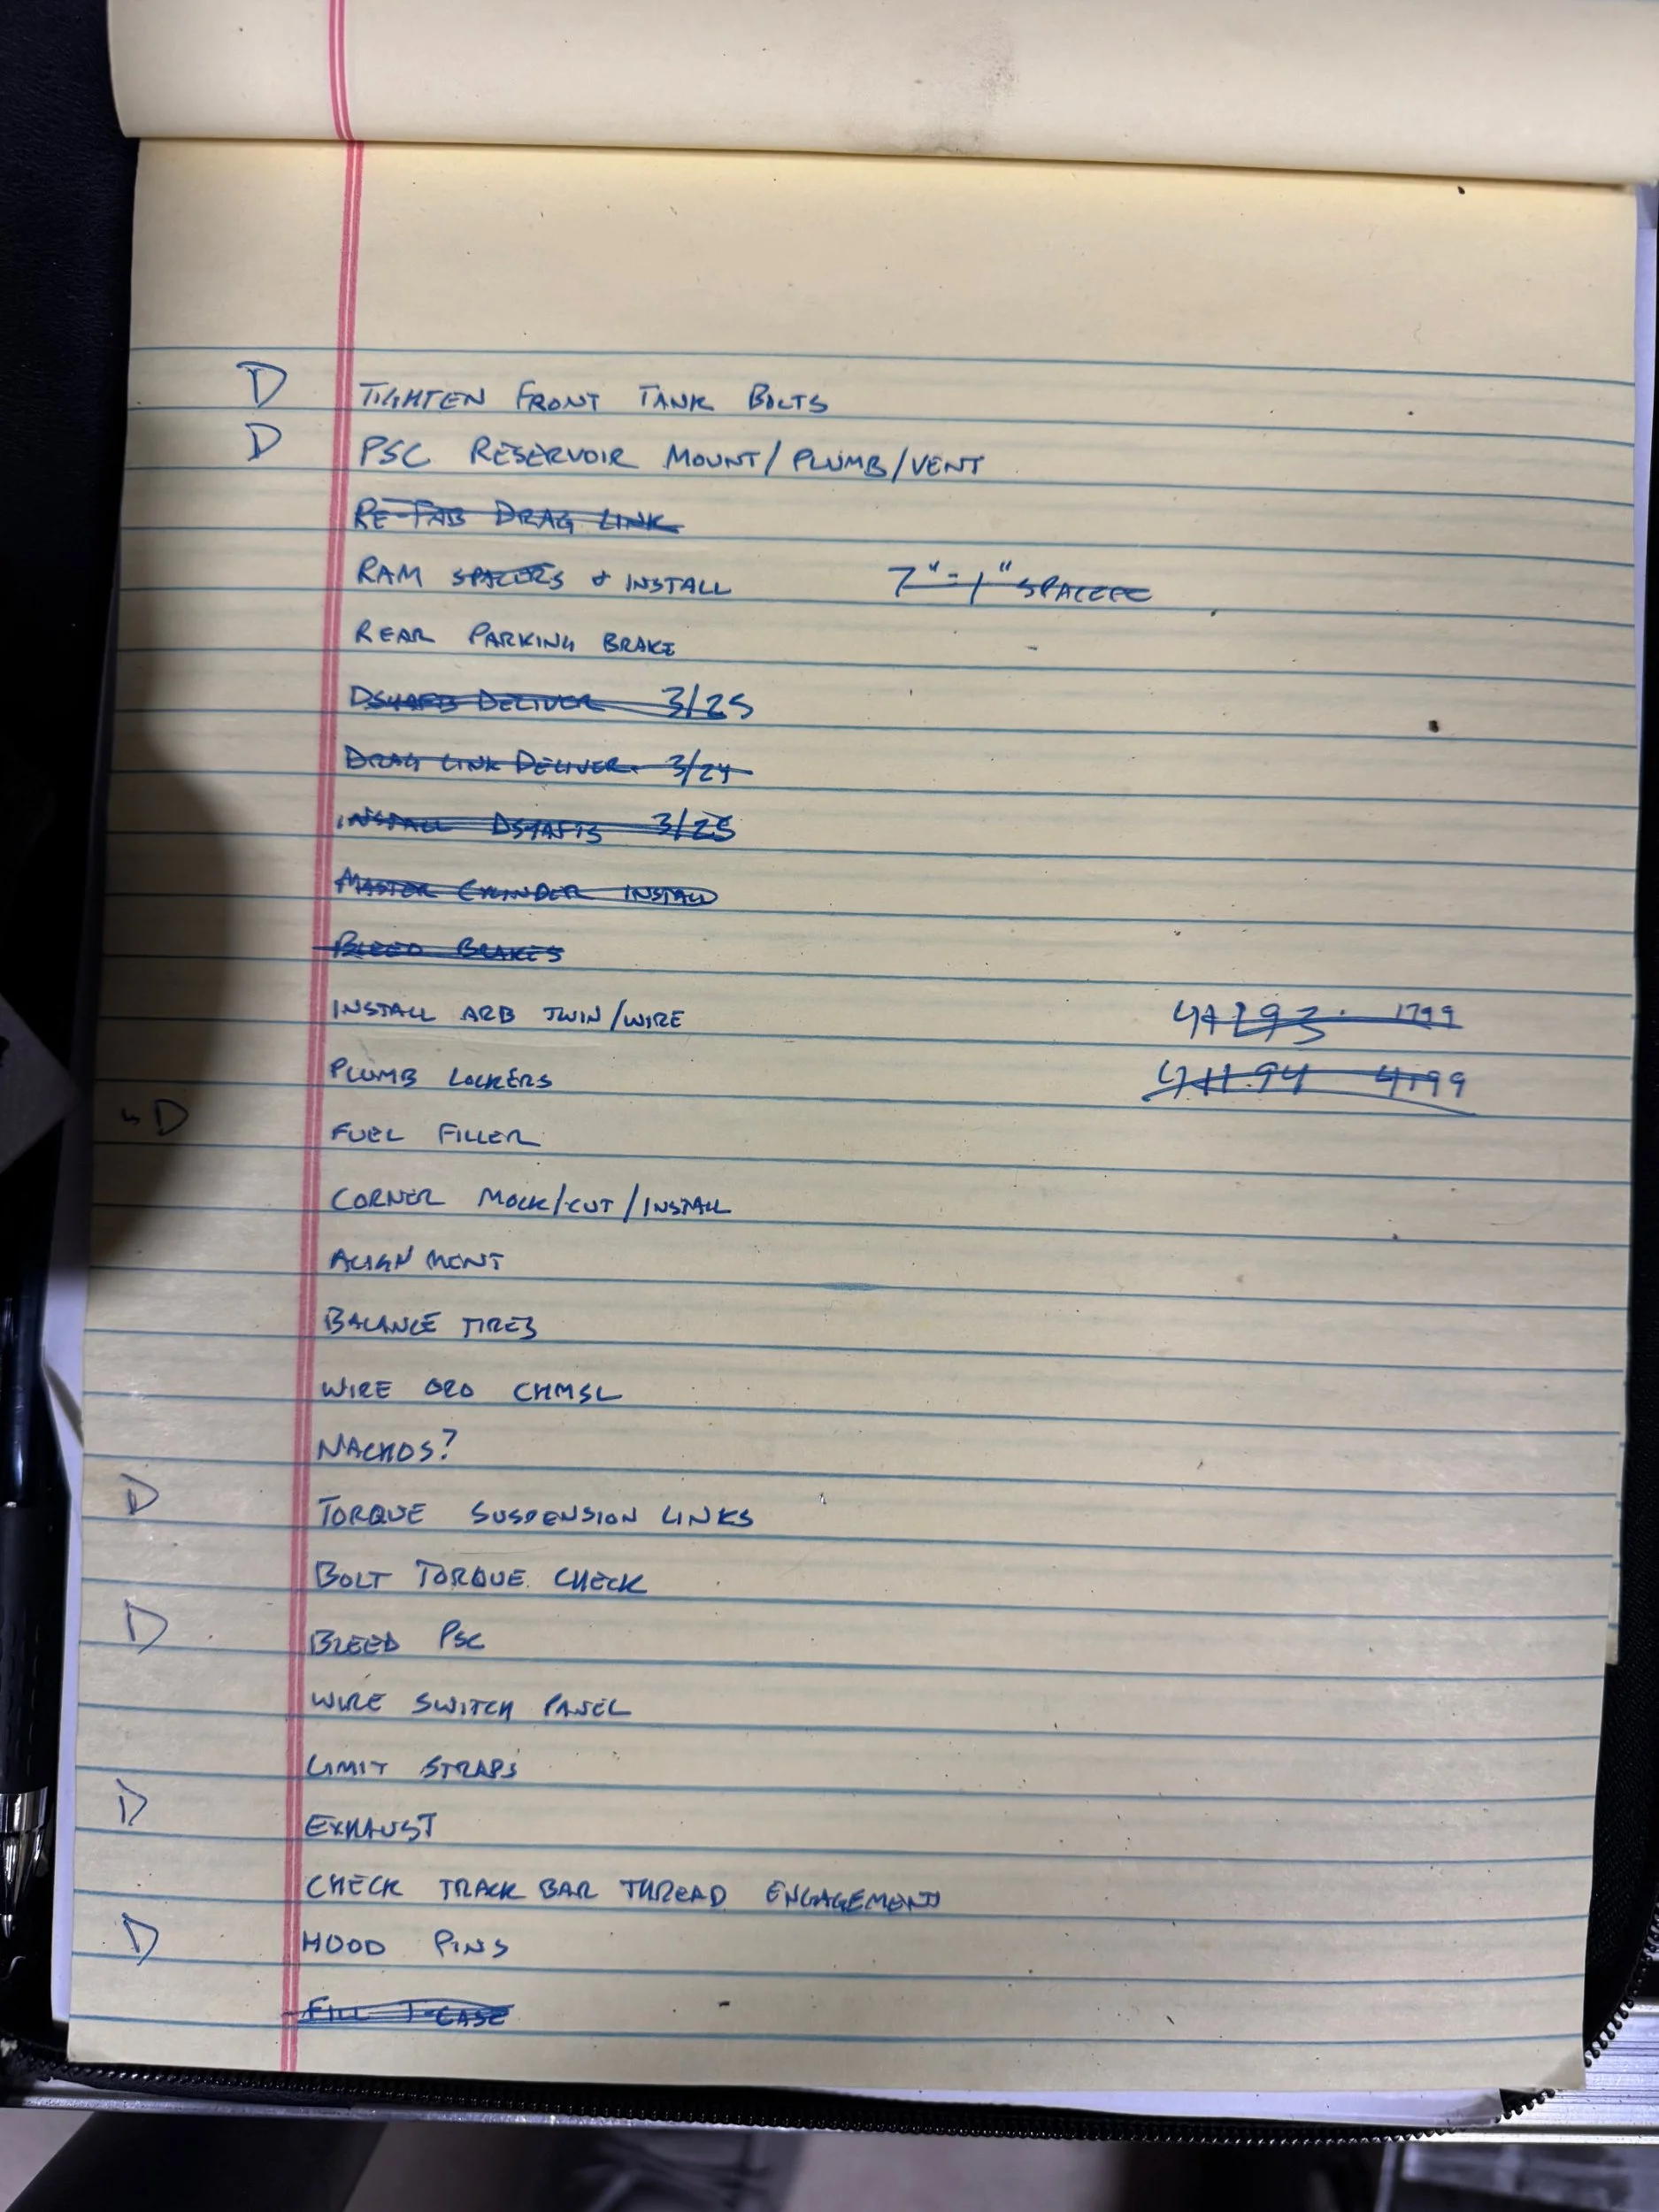 D TIGHTEN FRONT TANK BOLTS
D PSC RESERVOIR MOUNT/PLUMB/VENT
RE-FAB DRAG LINK
RAM SPACERS & INSTALL 7"-1" SPACER
REAR PARKING BRAKE
DSHAFTS DELIVER 3/25
DRAG LINK DELIVER. 3/24
INSTALL DSHAFTS 3/25
MASTER CYLINDER INSTALL
BLEED BRAKES
INSTALL ARB TWIN/WIRE 1799
PLUMB LOCKERS 4199
D FUEL FILLER
CORNER MOCK/CUT/INSTALL
ALIGNMENT
BALANCE TIRES
WIRE CHMSL
NACHOS?
D TORQUE SUSPENSION LINKS
BOLT TORQUE CHECK
D BLEED PSC
WIRE SWITCH PANEL
LIMIT STRAPS
D EXHAUST
CHECK TRACK BAR THREAD ENGAGEMENT
D HOOD PINS
FILL T-CASE